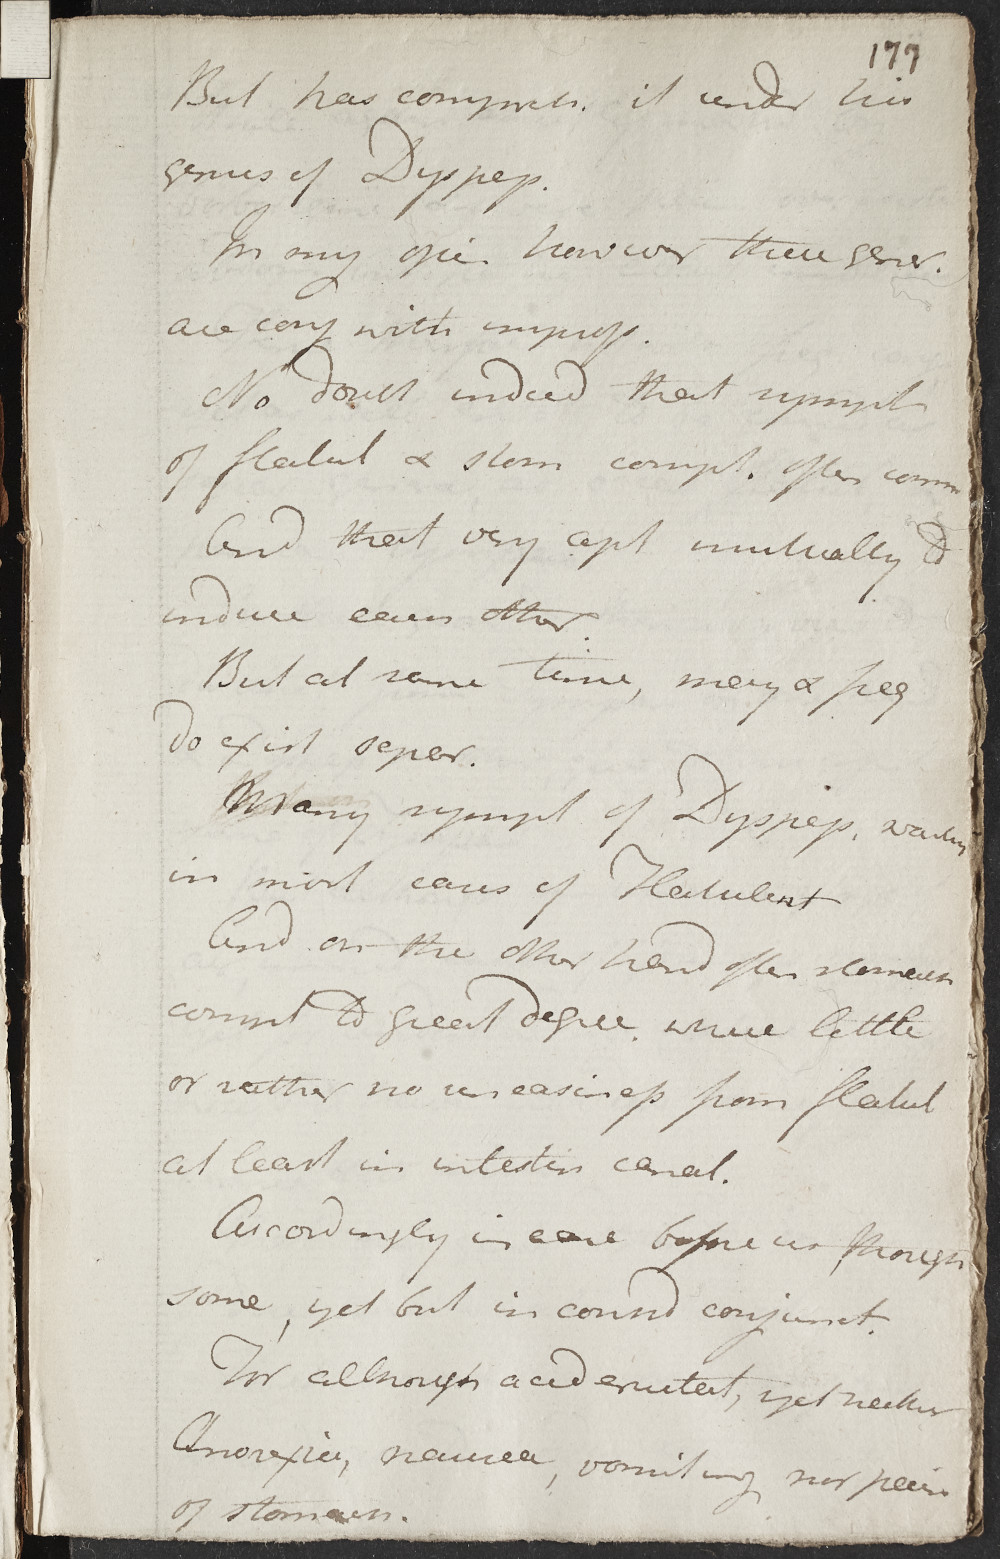 177
But has compreh. it under his
genus of Dyspep.
In my opin. however these gener.
are conj with improp.
No doubt indeed that sympt
of flatul & stom compl. often conn
And that very apt mutually to
induce each other.
But at same time, may & freq
do exist separ.
Many sympt of Dyspep. wanting
in most cases of Flatulent
And on the other hand often stomach
compt to great degree. where little
or rather no uneasiness from flatul
at least in intestin canal.
Accordingly in case before us though
some, yet but in conjunct.
For although acid eructat, yet neither
Anorexia, nausea, vomiting nor pain
of stomach.